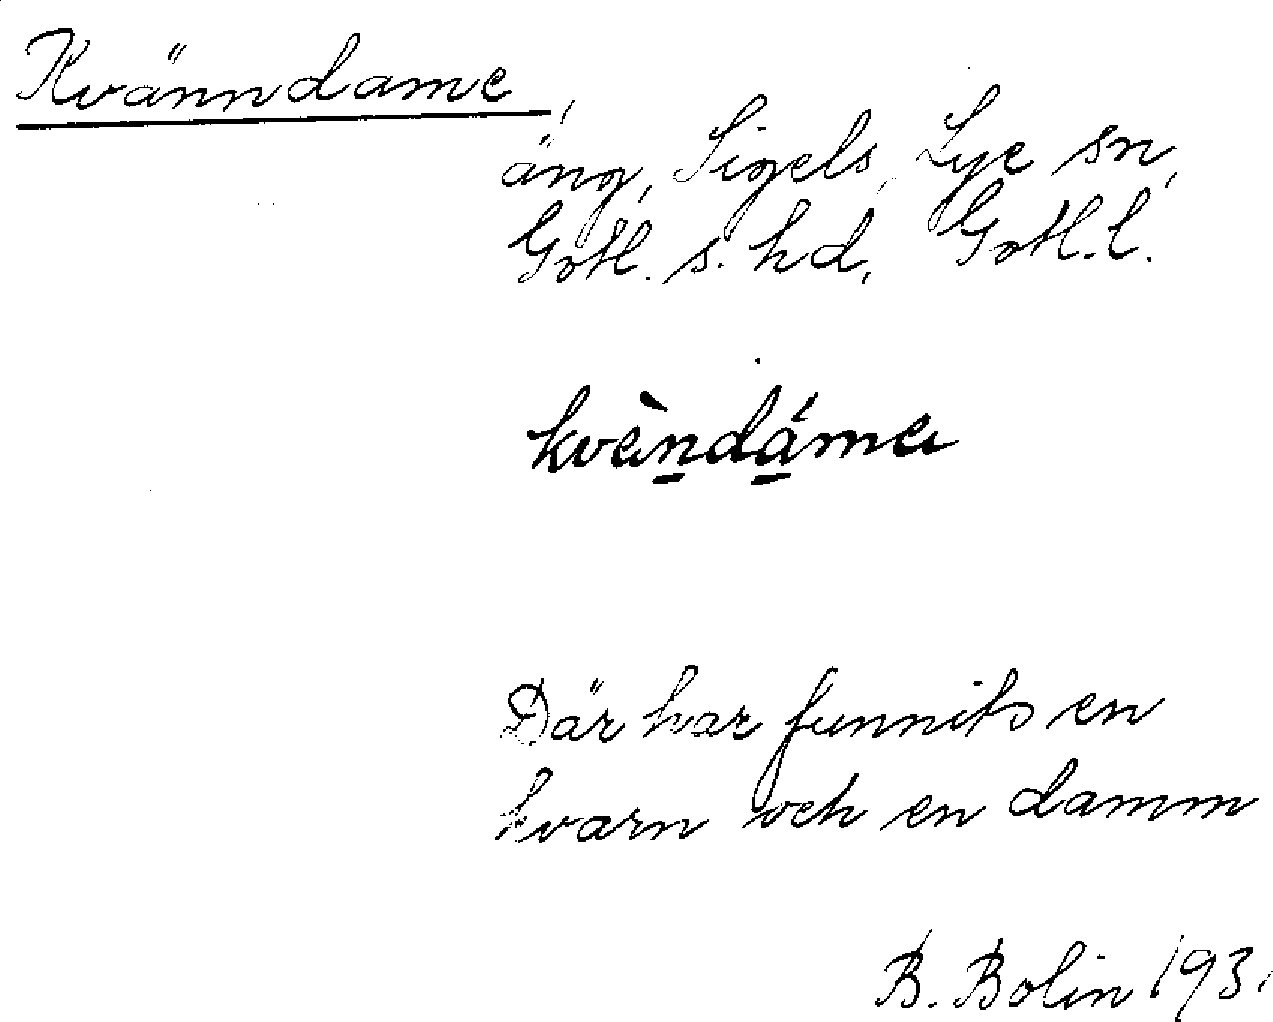 Kvänndame,
äng, Sigels, Lye sn,
Gotl. s. hd, Gotl. l.
kvèndáma
Där har funnits en
kvarn och en damm
B. Bolin